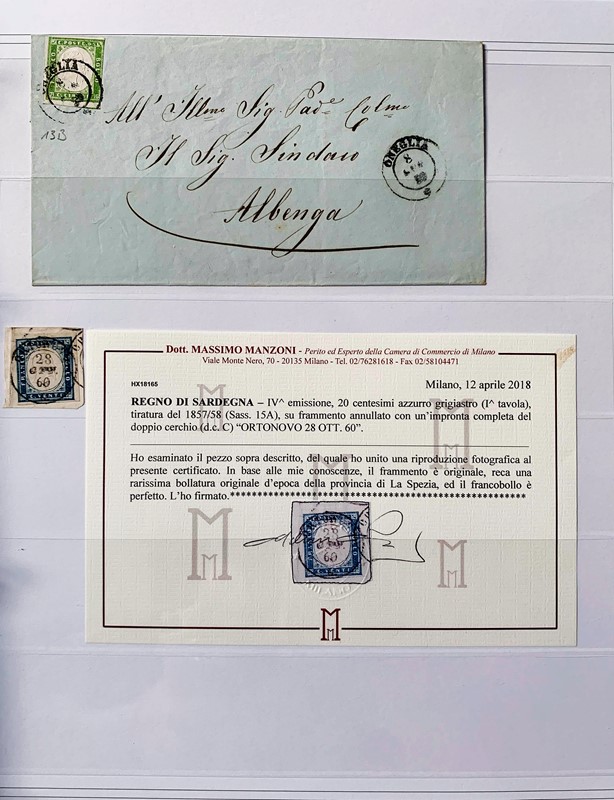 ONEGLIA
13B
All' Illmo Sig. Pade Colmo
Il Sig. Sindaco
Albenga
ONEGLIA
8
60
28
60
C. VENTI
Dott. MASSIMO MANZONI - Perito ed Esperto della Camera di Commercio di Milano
Viale Monte Nero, 70 - 20135 Milano - Tel. 02/76281618 - Fax 02/58104471
HX18165
Milano, 12 aprile 2018
REGNO DI SARDEGNA – IV^ emissione, 20 centesimi azzurro grigiastro (I^ tavola),
tiratura del 1857/58 (Sass. 15A), su frammento annullato con un'impronta completa del
doppio cerchio (d.c. C) "ORTONOVO 28 OTT. 60".
Ho esaminato il pezzo sopra descritto, del quale ho unito una riproduzione fotografica al
presente certificato. In base alle mie conoscenze, il frammento è originale, reca una
rarissima bollatura originale d'epoca della provincia di La Spezia, ed il francobollo è
perfetto. L'ho firmato.
28
60
C. VENTI
MILANO